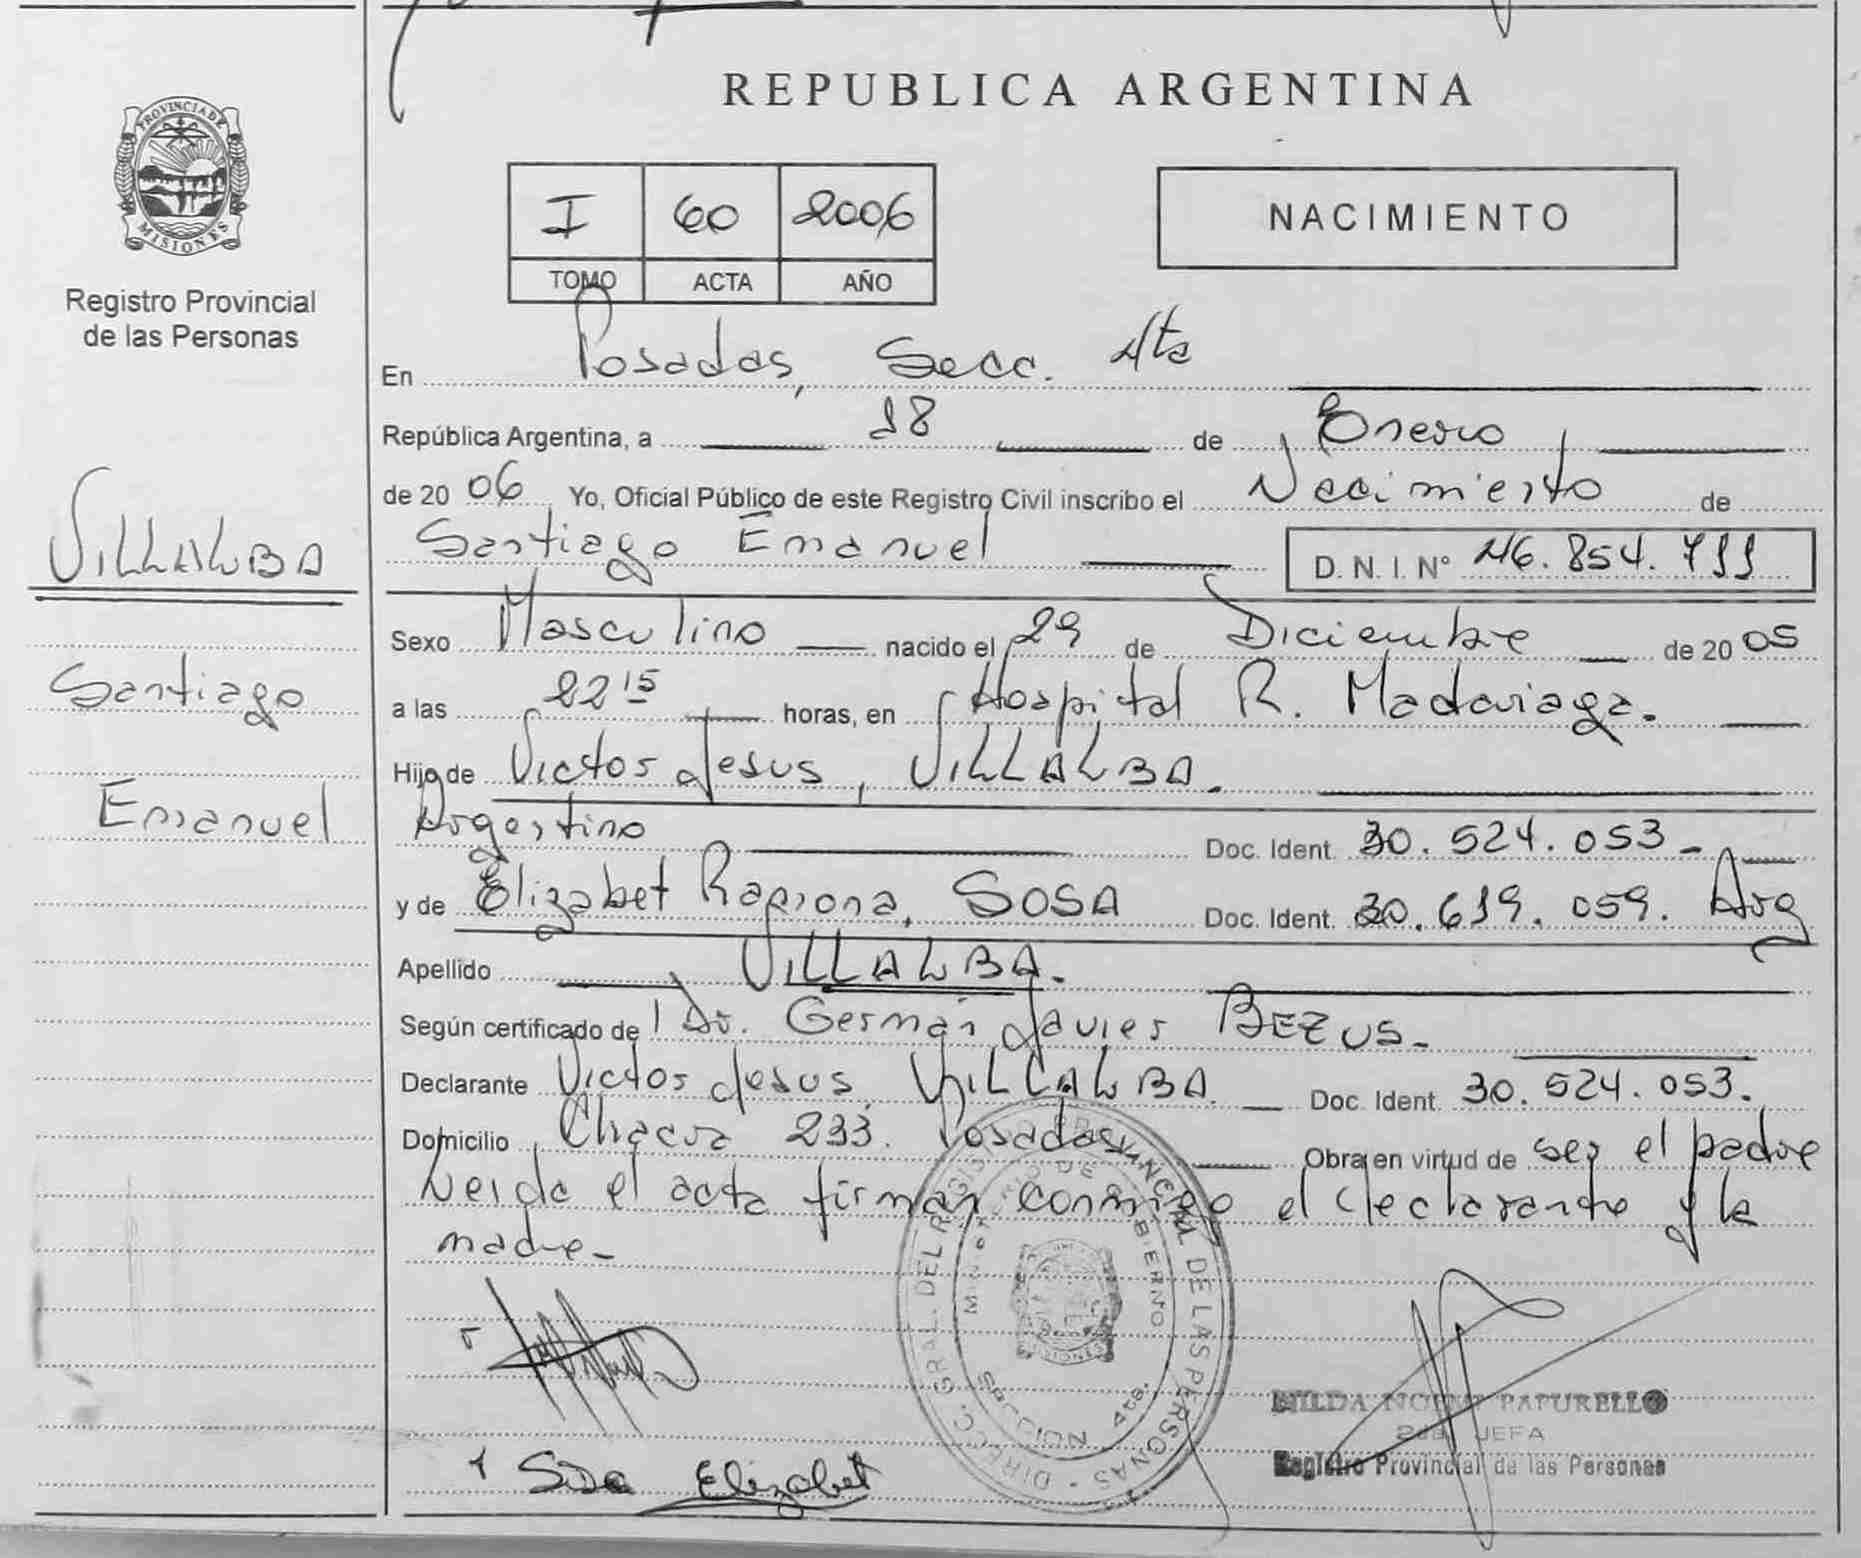 REPUBLICA ARGENTINA
PROVINCIA DE
MISIONES
Registro Provincial
de las Personas
I 60 2006
TOMO ACTA AÑO
NACIMIENTO
En Posadas, Secc. 4ta
República Argentina, a 18 de Enero
de 20 06 Yo, Oficial Público de este Registro Civil inscribo el Nacimiento de
Santiago Emanuel D. N. I. Nº 46.854.711
VILLALBA
Santiago
Emanuel
Sexo Masculino nacido el 29 de Diciembre de 20 05
a las 22 15 horas, en Hospital R. Madariaga.
Hijo de Victor Jesus, VILLALBA.
Argentino Doc. Ident. 30.524.053-
y de Elizabet Ramona, SOSA Doc. Ident. 30.619.059. Arg
Apellido VILLALBA.
Según certificado de Dr. Germán Javier BEZUS-
Declarante Victor Jesus, VILLALBA. Doc. Ident. 30.524.053.
Domicilio Chacra 233. Posadas Obra en virtud de ser el padre
Leida el acta firman conmigo el declarante y la
madre-
DIRECC. GRAL. DEL REGISTRO PROVINCIAL DE LAS PERSONAS
MINISTERIO DE GOBIERNO
SECCION 4ta.
MISIONES
NOEMI PAPURELLO
2da. JEFA
Registro Provincial de las Personas
Sosa Elizabet